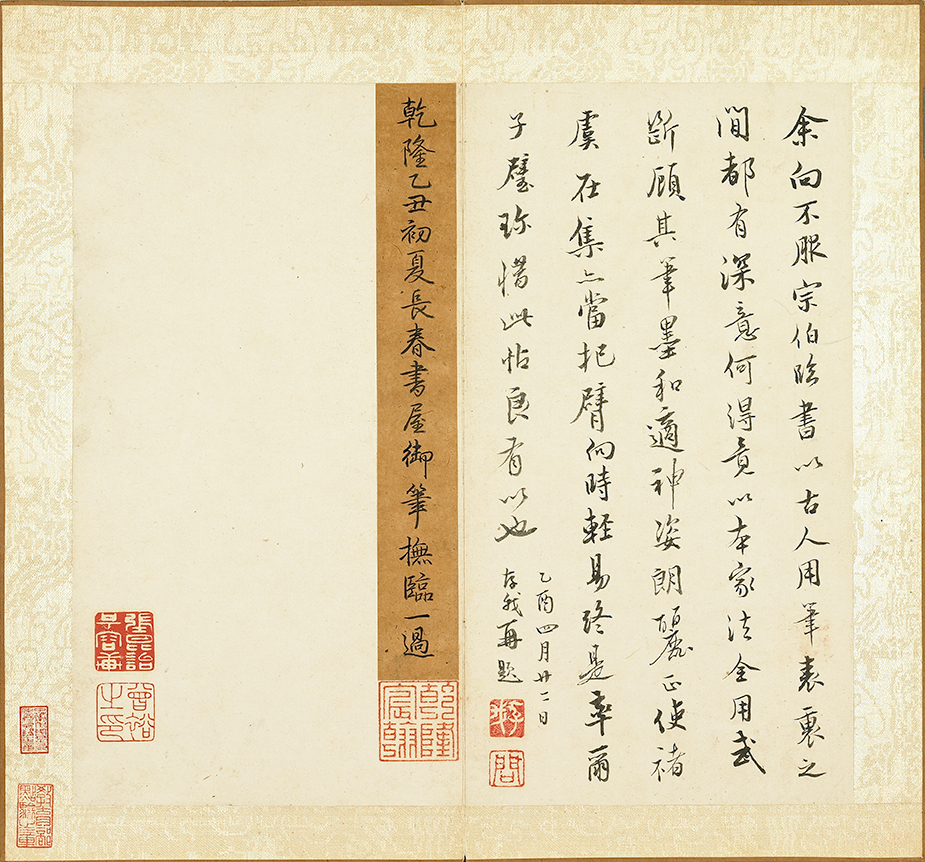 余向不服宗伯臨書以古人用筆表裏之
間都有深意何得竟以本家法全用武
斷顧其筆墨和適神姿朗麗正使褚
虞在集亦當把臂向時輕易終是率爾
子璧珎惜此帖良有以也
乙酉四月廿二日
存我再題
乾隆乙丑初夏長春書屋御筆撫臨一過
乾隆宸翰
曾裕之印